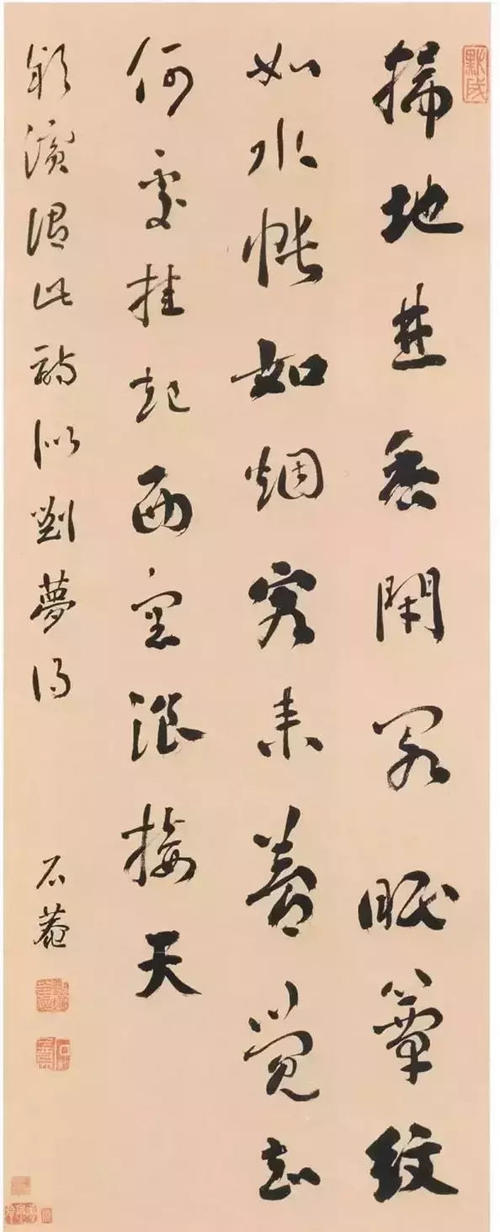 掃地焚香閉閣眠簟紋
如水帳如烟客来夢覺知
何處挂起西窓浪接天
潁濱謂此詩似劉夢得
石菴